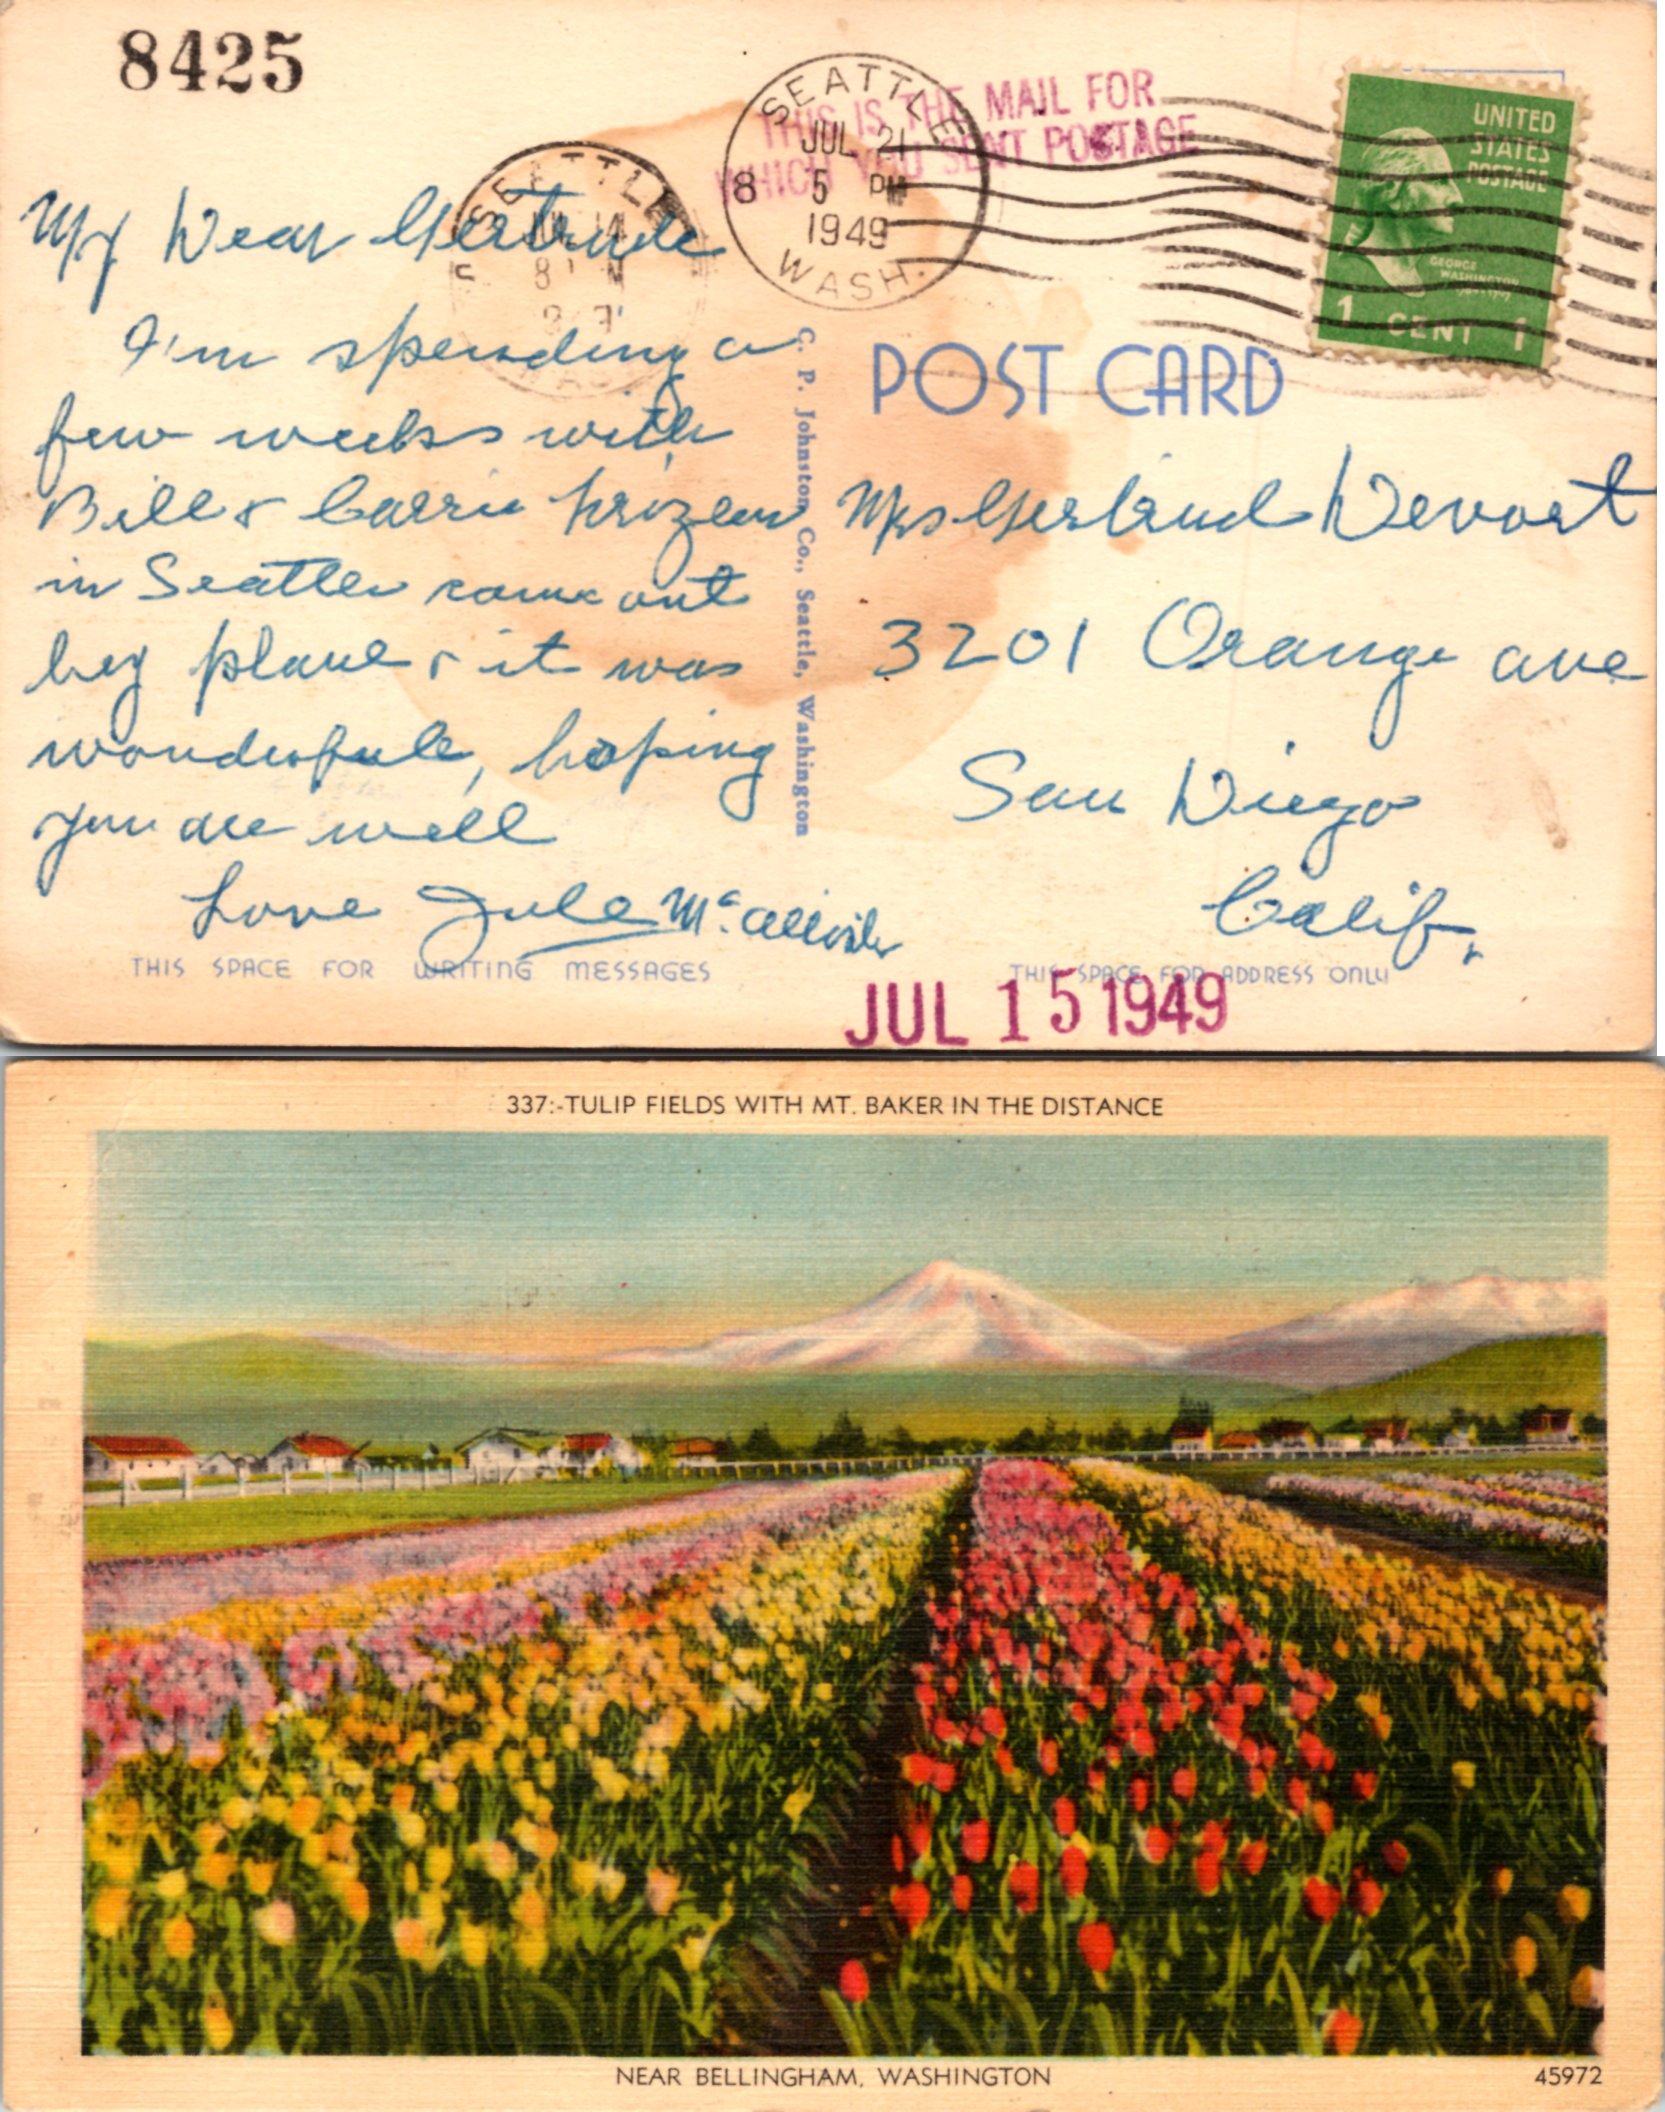 8425
SEATTLE
JUL 21
8 5 PM
1949
WASH.
THIS IS THE MAIL FOR
WHICH YOU SENT POSTAGE
UNITED
STATES
POSTAGE
GEORGE
WASHINGTON
1 CENT 1
SEATTLE
JUL 14
My Dear Gertrude
I'm spending a
few weeks with
Bill & Carrie
in Seattle came out
by plane & it was
wonderfull, hoping
you are well
Love Jule McAllister
THIS SPACE FOR WRITING MESSAGES
C. P. Johnston Co., Seattle, Washington
POST CARD
Mrs Gertrud Devort
3201 Orange ave
San Diego
Calif.
THIS SPACE FOR ADDRESS ONLY
JUL 15 1949
337:-TULIP FIELDS WITH MT. BAKER IN THE DISTANCE
NEAR BELLINGHAM, WASHINGTON
45972